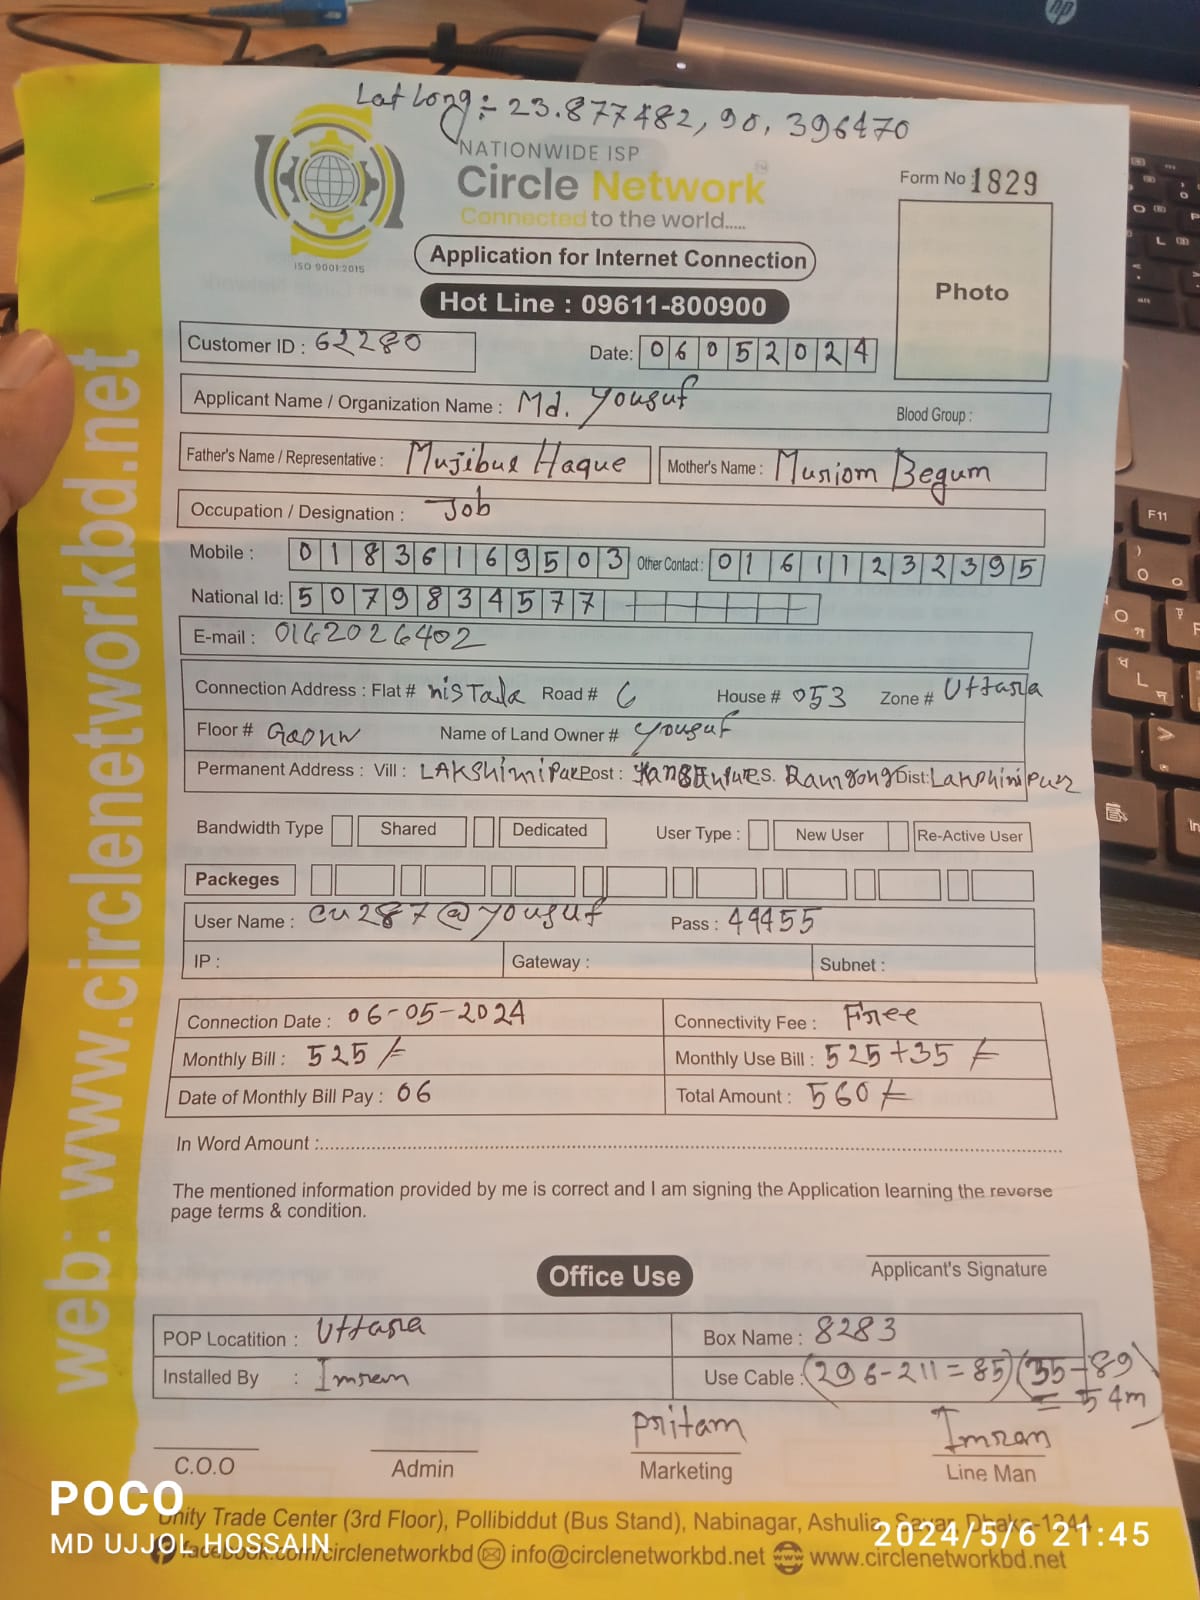 Lat Long:- 23.877482, 90.396470
NATIONWIDE ISP
Circle Network
Connected to the world.....
ISO 9001:2015
Form No : 1829
Photo
Application for Internet Connection
Hot Line : 09611-800900
Customer ID : 62280
Date: 06052024
Applicant Name / Organization Name : Md. Yousuf Blood Group :
Father's Name / Representative : Mujibul Haque Mother's Name : Muriom Begum
Occupation / Designation : Job
Mobile : 01836169503 Other Contact : 01611232395
National Id: 5079834577
E-mail : 0162026402
Connection Address : Flat # nisTala Road # 6 House # 053 Zone # Uttara
Floor # Name of Land Owner # Yousuf
Permanent Address : Vill : LAKshimiPur Post : P.S. Ramgong Dist: Lakshimipur
Bandwidth Type Shared Dedicated User Type : New User Re-Active User
Packeges
User Name : cu287@yousuf Pass : 49455
IP : Gateway : Subnet :
Connection Date : 06-05-2024 Connectivity Fee : Free
Monthly Bill : 525/= Monthly Use Bill : 525+35/=
Date of Monthly Bill Pay : 06 Total Amount : 560/=
In Word Amount :
The mentioned information provided by me is correct and I am signing the Application learning the reverse
page terms & condition.
Applicant's Signature
Office Use
POP Locatition : Uttara Box Name : 8283
Installed By : Imran Use Cable : (296-211=85)(35-89
= 54m)
Pritam Imran
C.O.O Admin Marketing Line Man
Unity Trade Center (3rd Floor), Pollibiddut (Bus Stand), Nabinagar, Ashulia, Savar, Dhaka-1344
facebook.com/circlenetworkbd info@circlenetworkbd.net www.circlenetworkbd.net
web: www.circlenetworkbd.net
POCO
MD UJJOL HOSSAIN
2024/5/6 21:45
hp
F11